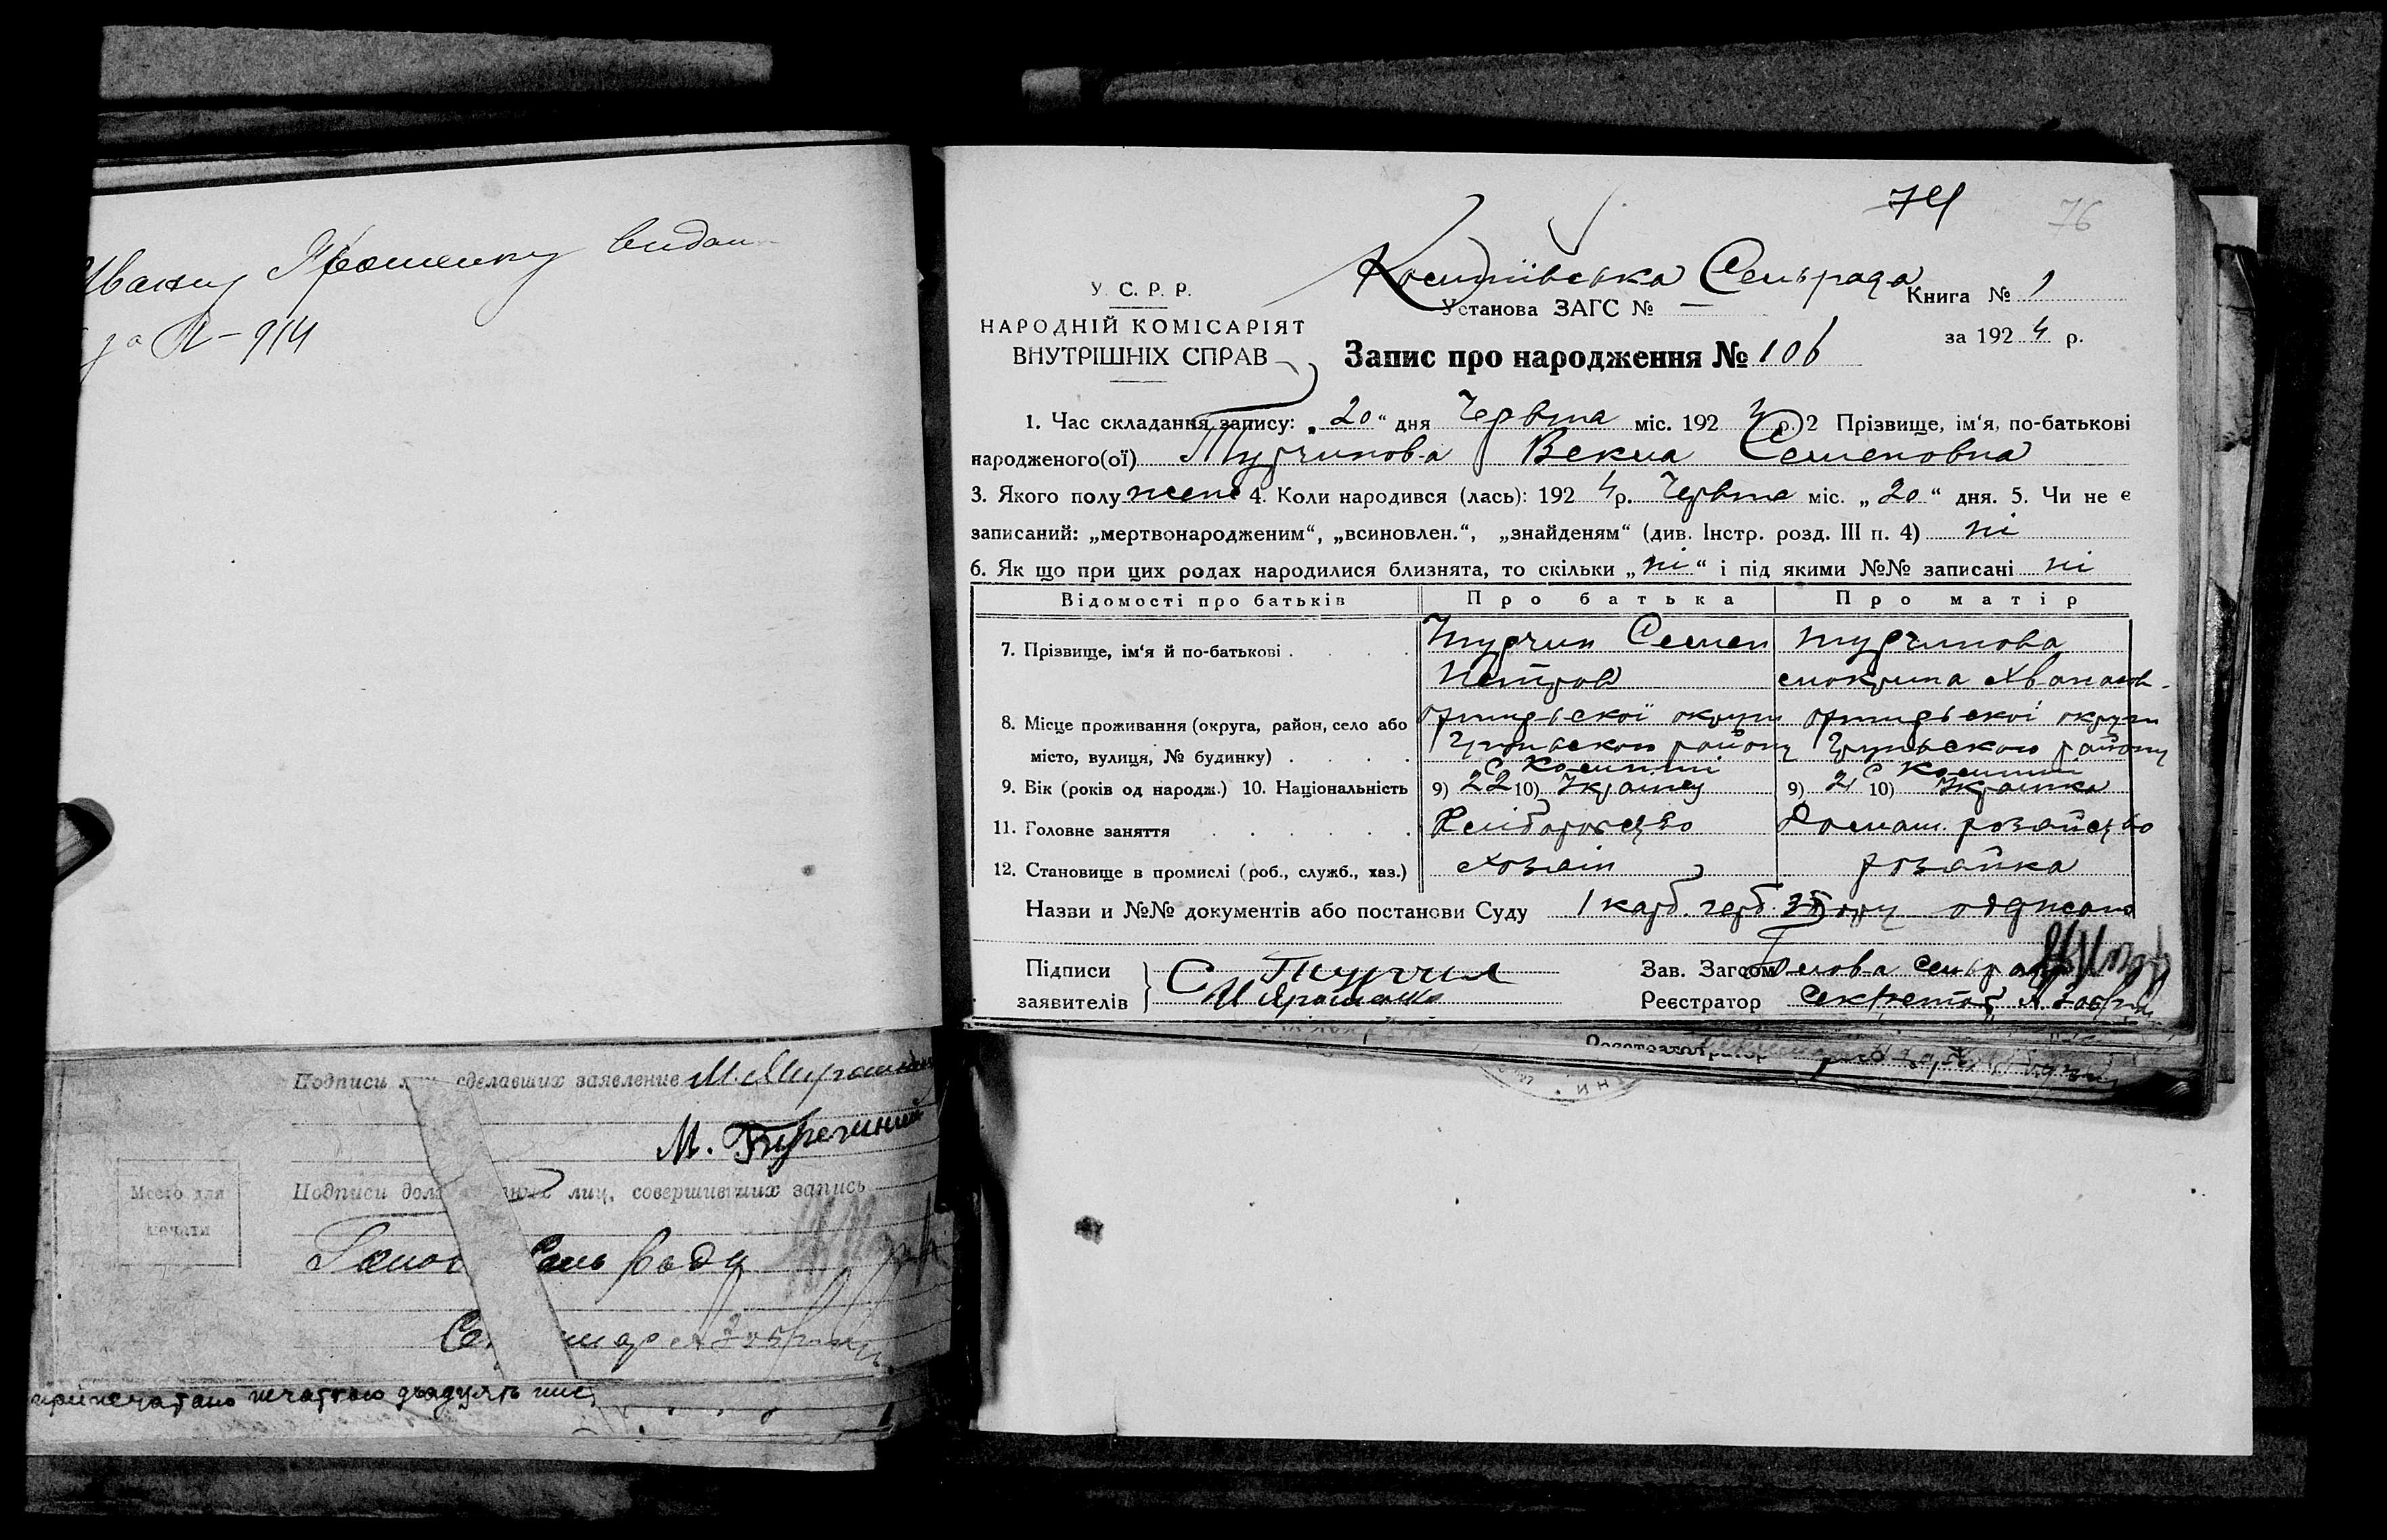 Ивану Ярошенку видан
за № 914
Подписи лиц сделавших заявление М. Мирошни
М.
Место для
печати
Подписи лиц, совершивших запись
Голов Сель ради
припечатано печаткою
74
76
У. С. Р. Р.
НАРОДНІЙ КОМІСАРІЯТ
ВНУТРІШНІХ СПРАВ
Сельрада
Установа ЗАГС № —
Книга № 1
за 1924 р.
Запис про народження № 106
1. Час складання запису: „20“ дня Червня міс. 1924 р. 2 Прізвище, ім‘я, по-батькові
народженого(ої) Турчинова Векла Семеновна
3. Якого полу жено 4. Коли народився (лась): 1924 р. Червня міс. „20“ дня. 5. Чи не є
записаний: „мертвонародженим“, „всиновлен.“, „знайденям“ (див. Інстр. розд. III п. 4) ні
6. Як що при цих родах народилися близнята, то скільки „ні“ і під якими №№ записані ні
Відомості про батьків Про батька Про матір
7. Прізвище, ім‘я й по-батькові . . . . Турчин Семен Турчинова
Петров Мокрина Хванасов.
8. Місце проживання (округа, район, село або округи округи
місто, вулиця, № будинку) . . . . району району
с с
9. Вік (років од народж.) 10. Національність 9) 22 10) Українец 9) 21 10) Українка
11. Головне заняття . . . . . . Хліборобство Домаш. хозяйство
12. Становище в промислі (роб., служб., хаз.) хозяїн хозяйка
Назви и №№ документів або постанови Суду 1 карб. герб. збору одписано
Підписи
заявителів
С Турчин
Зав. Загсом Голова Сельради
Реєстратор Секретар
Реєстратор